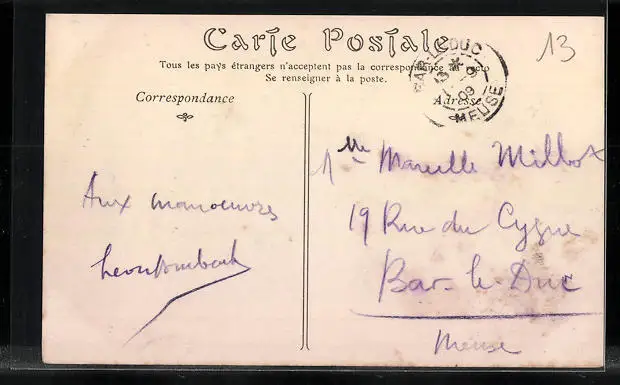 Carte Postale
Tous les pays étrangers n'acceptent pas la correspondance au recto
Se renseigner à la poste.
Correspondance
Adresse
BAR-LE-DUC
MEUSE
09
13
Aux manoeuvres
Mlle Marcelle Millot
19 Rue du Cygne
Bar-le-Duc
Meuse